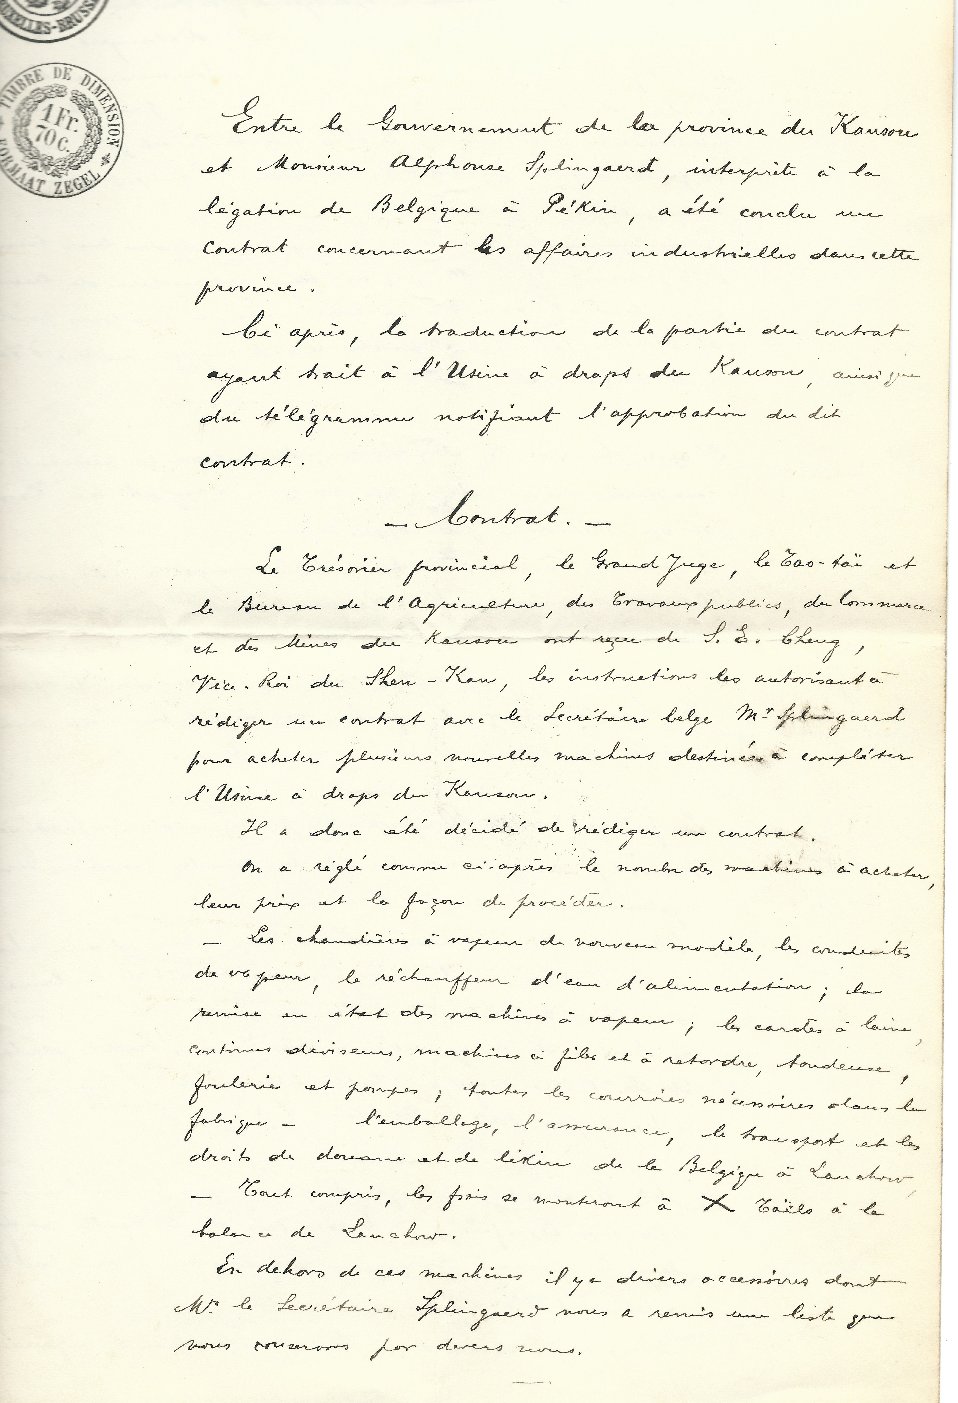 BRUXELLES-BRUSS
TIMBRE DE DIMENSION
1 Fr.
70 C.
FORMAAT ZEGEL
Entre le Gouvernement de la province du Kansou
et Monsieur Alphonse Splingaerd, interprète à la
légation de Belgique à Pékin, a été conclu un
contrat concernant les affaires industrielles dans cette
province.
Ci après, la traduction de la partie du contrat
ayant trait à l'Usine à draps du Kansou, ainsi que
du télégramme notifiant l'approbation du dit
contrat.
- Contrat. -
Le Trésorier provincial, le Grand Juge, le Tao-taï et
le Bureau de l'Agriculture, des Travaux publics, du Commerce
et des Mines du Kansou ont reçu de S. E. Cheng,
Vice-Roi du Shen-Kan, les instructions les autorisant à
rédiger un contrat avec le Secrétaire belge Mr Splingaerd
pour acheter plusieurs nouvelles machines destinées à compléter
l'Usine à draps du Kansou.
Il a donc été décidé de rédiger un contrat.
On a réglé comme ci-après le nombre des machines à acheter,
leur prix et la façon de procéder.
- Les chaudières à vapeur de nouveau modèle, les conduites
de vapeur, le réchauffeur d'eau d'alimentation; la
remise en état des machines à vapeur; les cardes à laine,
continus diviseurs, machines à filer et à retordre, tondeuse,
foulerie et pompes; toutes les courroies nécessaires dans la
fabrique - l'emballage, l'assurance, le transport et les
droits de douane et de likin de la Belgique à Lanchow,
- Tout compris, les frais se monteront à X Taëls à la
balance de Lanchow.
En dehors de ces machines il y a divers accessoires dont
Mr le Secrétaire Splingaerd nous a remis une liste que
nous conservons par devers nous.